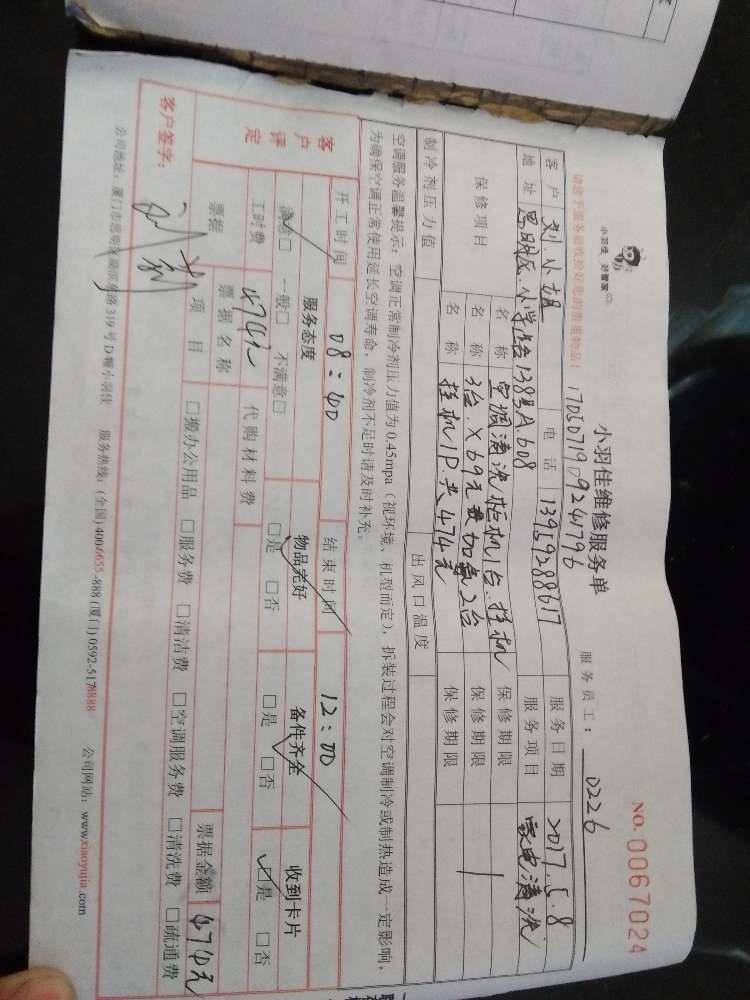 小羽佳 好管家
小羽佳维修服务单
NO. 0067024
1705071909241796
服务员工： 0226
请您于服务前收拾好您的贵重物品！
客户 刘小姐 电话 13959288617 服务日期 2017.5.8
地址 思明区小学路138号A608 服务项目 家电清洗
保修项目 名称 空调清洗柜机1台.挂机 保修期限
名称 3台.X69元 加氟2台 保修期限
名称 挂机1P.共474元 保修期限
制冷剂压力值 出风口温度
空调服务温馨提示：空调正常制冷剂压力值为0.45mpa（视环境、机型而定），拆装过程会对空调制冷或制热造成一定影响，
为确保空调正常使用延长空调寿命，制冷剂不足时请及时补充。
开工时间 08:40 结束时间 12:00
客户评定 服务态度 物品完好 备件齐全 收到卡片
满意□ 一般□ 不满意□ □是 □否 □是 □否 □是 □否
工时费 474元 代购材料费
票据 票据名称 票据金额 474元
项目 □搬办公用品 □服务费 □清洁费 □空调服务费 □清洗费 □疏通费
客户签字： 刘
公司地址：厦门市思明区湖滨南路319号D幢小羽佳 服务热线：(全国)4004655-888 (厦门)0592-5178888 公司网站：www.xiaoyujia.com